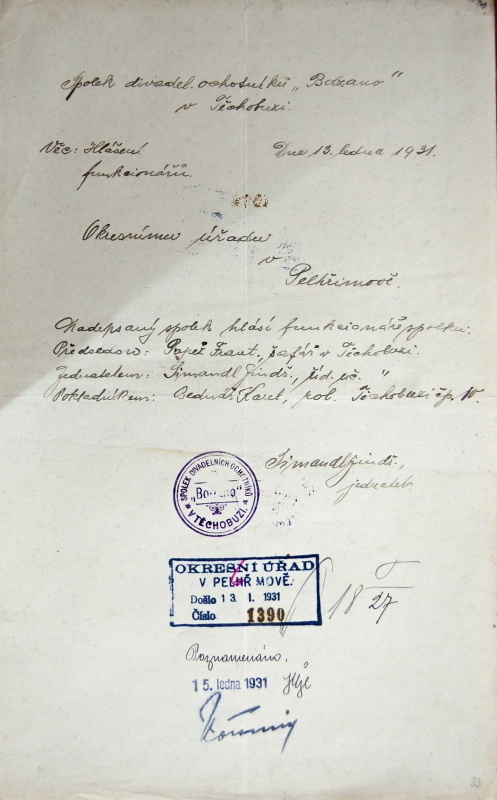 Spolek divadel. ochotníků „Bolzano"
v Těchobuzi.
Věc: Hlášení
funkcionářů.
Dne 13. ledna 1931.
Okresnímu úřadu
v
Pelhřimově.
Nadepsaný spolek hlásí funkcionáře spolku.
Předsedou: Papež Frant., šafář v Těchobuzi.
Jednatelem: Šimandl Jindř., říd. uč. "
Pokladníkem: Bednář Karel, rol. Těchobuzi čp. 10.
Šimandl Jindř.,
jednatel.
SPOLEK DIVADELNÍCH OCHOTNÍKŮ
„Bolzano"
V TĚCHOBUZI.
OKRESNÍ ÚŘAD
V PELHŘIMOVĚ.
Došlo 13. I. 1931
Číslo 1390
18 27
Poznamenáno.
15. ledna 1931
33